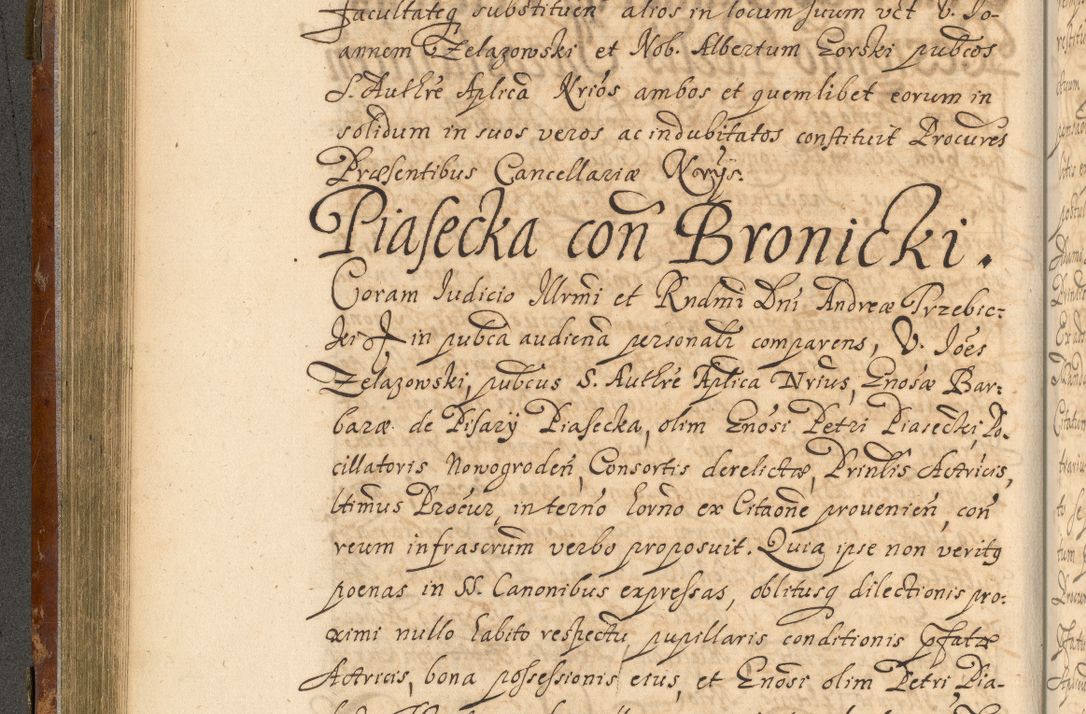 facultateq substituen̄ alios in locum suum vct V. Jo-
annem Zelazowski et Nob. Albertum Gorski pubcos
S. Authre Aplica Nrios ambos et quemlibet eorum in
solidum in suos veros ac indubitatos constituit Procures
Præsentibus Cancellariæ Nrijs.
Piasecka con̄ Bronicki.
Coram Iudicio Illrmi et Rndmi Dni Andreæ Przebic:
kei in pubca audiena personalr comparens, V. Joes
Zelazowski, pubcus S. Authre Aplica Nrius, Gnosæ Bar:
baræ de Pisary Piasecka, olim Gnosi Petri Piasecki, Po-
cillatoris Nowogroden̄, Consortis derelictæ, Prinlis Actricis,
ltimus Procur, in termo horno ex Citaone provenien̄, con̄
reum infrascrum verbo proposuit. Quia ipse non veritq
poenas in SS. Canonibus expressas, oblitusq dilectionis pro:
ximi nullo habito respectu, pupillaris conditionis pfatæ
Actricis, bona possessionis eius, et Gnosi olim Petri Pia-